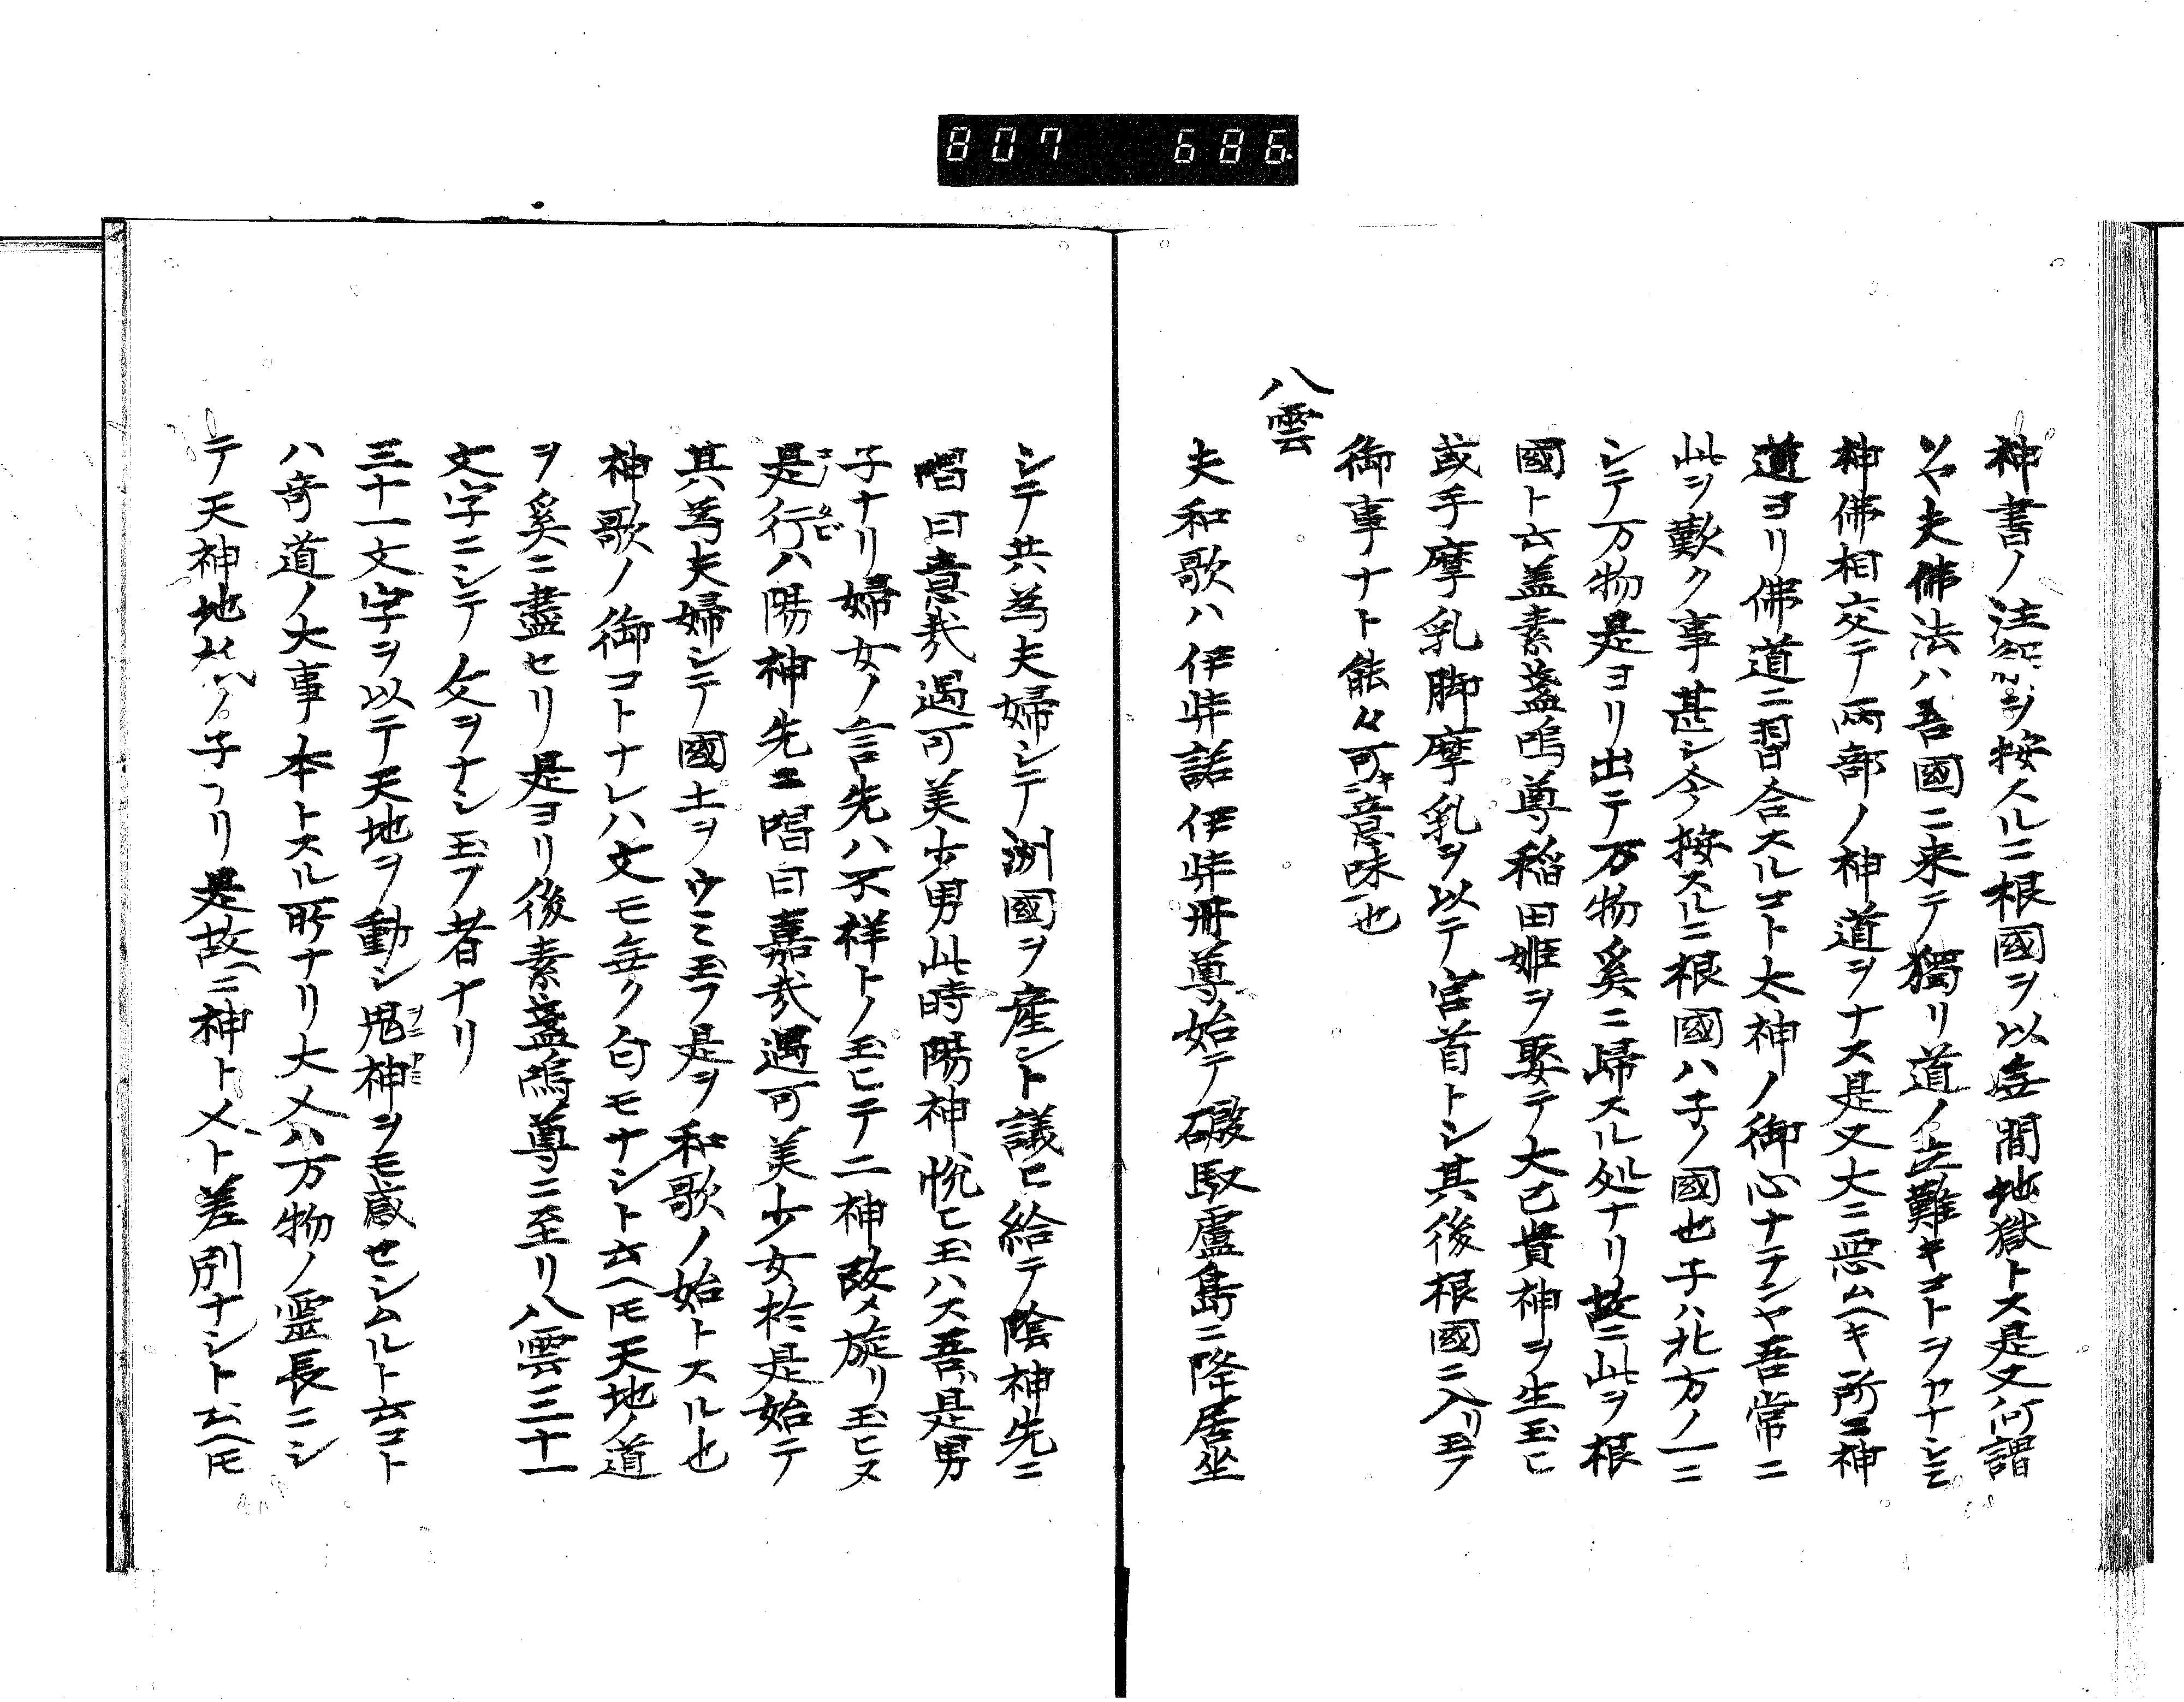 807 686.
神書ノ注ヲ按スルニ根國ヲ以無間地獄トス是又何謂
ソヤ夫佛法ハ吾國ニ来テ獨リ道ノ立難キコトヲヤナシミ
神佛相交テ兩部ノ神道ヲナス是又大ニ惡ムヘキ所ヱ神
道ヨリ佛道ニ習合スルコト太神ノ御心ナランヤ吾常ニ
此ヲ歎ク事甚シ今按スルニ根國ハ子ノ國也子ハ北方ノ一ニ
シテ万物是ヨリ出テ万物奚ニ歸スル処ナリ故ニ此ヲ根
國ト云盖素盞嗚尊稲田姫ヲ娶テ大己貴神ヲ生玉ヒ
或手摩乳脚摩乳ヲ以テ宮首トシ其後根國ニ入リ玉フ
御事ナト能々可キ意味也
八雲
夫和歌ハ伊弉諾伊弉冊尊始テ磤馭盧島ニ降居坐
シテ共為夫婦シテ洲國ヲ産ント議ヒ給テ陰神先ニ
唱曰意哉遇可美少男此時陽神悦ヒ玉ハス吾是男
子ナリ婦女ノ言先ハ不祥トノ玉ヒテ二神改メ旋リ玉ヒヌ
是行ハ陽神先ニ唱曰嘉哉遇可美少女於是始テ
其為夫婦シテ國土ヲウミ玉フ是ヲ和歌ノ始トスル也
神歌ノ御コトナレハ文モ無ク句モナシト云ヘ𪜈天地ノ道
ヲ奚ニ盡セリ是ヨリ後素盞嗚尊ニ至リ八雲三十一
文字ニシテ文ヲナシ玉フ者ナリ
三十一文字ヲ以テ天地ヲ動シ鬼神ヲモ感セシムルト云コト
ハ奇道ノ大事本トスル所ナリ大人ハ万物ノ靈長ニシ
テ天神地ノ子ナリ是故ニ神ト人ト差別ナシト云ヘ𪜈